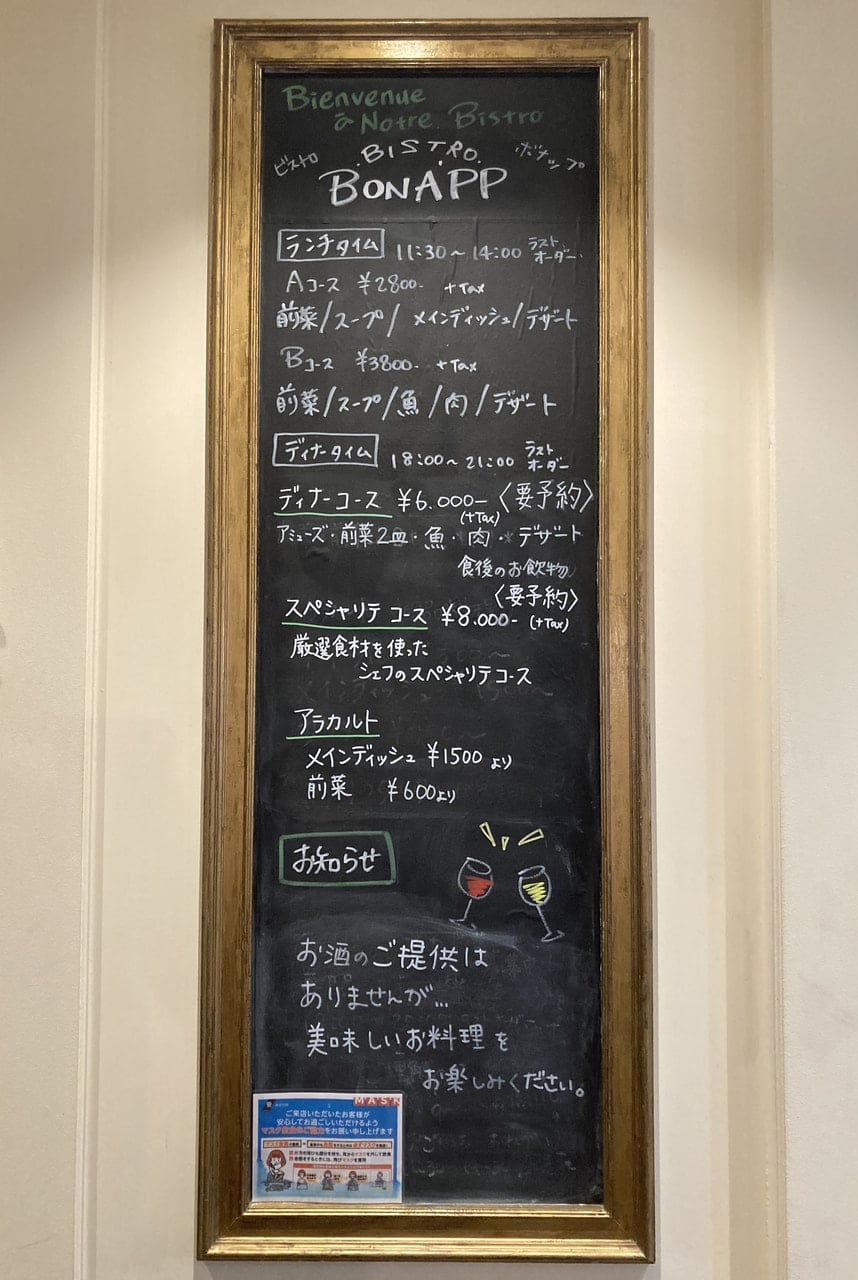 Bienvenue
à Notre Bistro
ビストロ BISTRO ボナップ
BON APP
ランチタイム 11:30〜14:00 ラストオーダー
Aコース ¥2800- +Tax
前菜/スープ/メインディッシュ/デザート
Bコース ¥3800- +Tax
前菜/スープ/魚/肉/デザート
ディナータイム 18:00〜21:00 ラストオーダー
ディナーコース ¥6.000- 〈要予約〉
(+Tax)
アミューズ・前菜2皿・魚・肉・デザート
食後のお飲物
〈要予約〉
スペシャリテ コース ¥8.000- (+Tax)
厳選食材を使った
シェフのスペシャリテコース
アラカルト
メインディッシュ ¥1500 より
前菜 ¥600より
お知らせ
お酒のご提供は
ありませんが...
美味しいお料理を
お楽しみください。
MASK
ご来店いただいたお客様が
安心してお過ごしいただけるよう
マスク飲食のご協力をお願い申し上げます